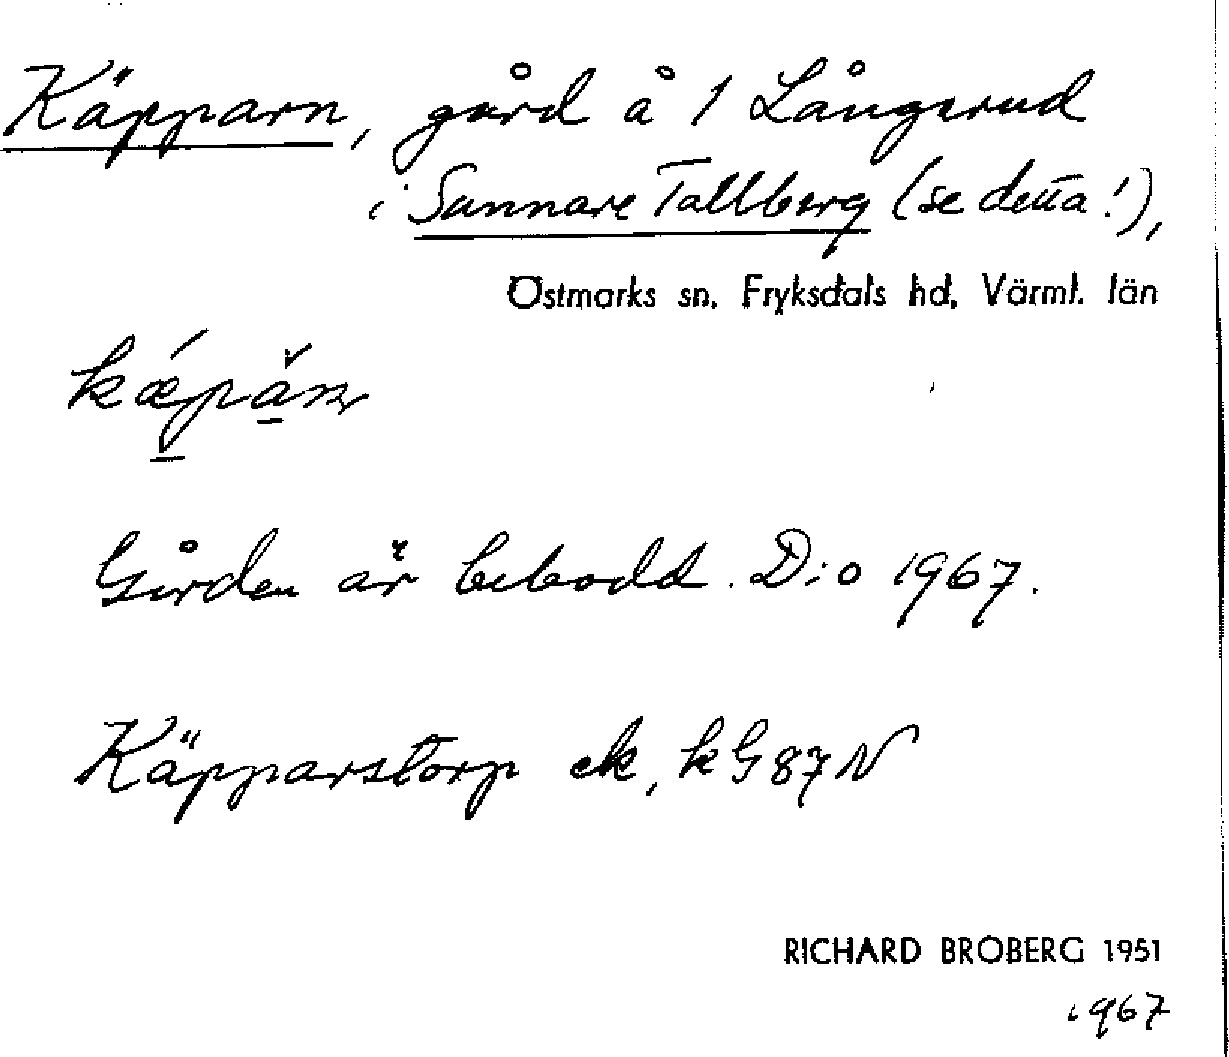 Käpparn, gård å 1 Långerud
i Sunnare Tallberg (se detta!),
Östmarks sn. Fryksdals hd, Värml. län
Gården är bebodd. D:o 1967.
Käpparstorp ek, kG87N
RICHARD BROBERG 1951
1967